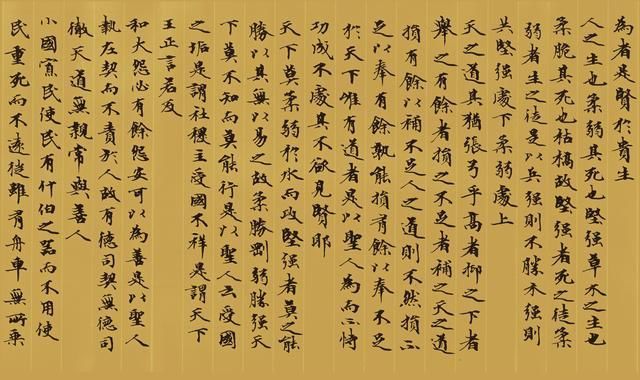 為者是賢於貴生
人之生也柔弱其死也堅強草木之生也
柔脆其死也枯槁故堅強者死之徒柔
弱者生之徒是以兵強則不勝木強則
共堅強處下柔弱處上
天之道其猶張弓乎高者抑之下者
舉之有餘者損之不足者補之天之道
損有餘以補不足人之道則不然損不
足以奉有餘孰能損有餘以奉不足
於天下唯有道者是以聖人為而不恃
功成不處其不欲見賢耶
天下莫柔弱於水而攻堅強者莫之能
勝以其無以易之故柔勝剛弱勝強天
下莫不知而莫能行是以聖人云受國
之垢是謂社稷主受國不祥是謂天下
王正言若反
和大怨必有餘怨安可以為善是以聖人
執左契而不責於人故有德司契無德司
徹天道無親常與善人
小國寡民使民有什伯之器而不用使
民重死而不遠徙雖有舟車無所乘